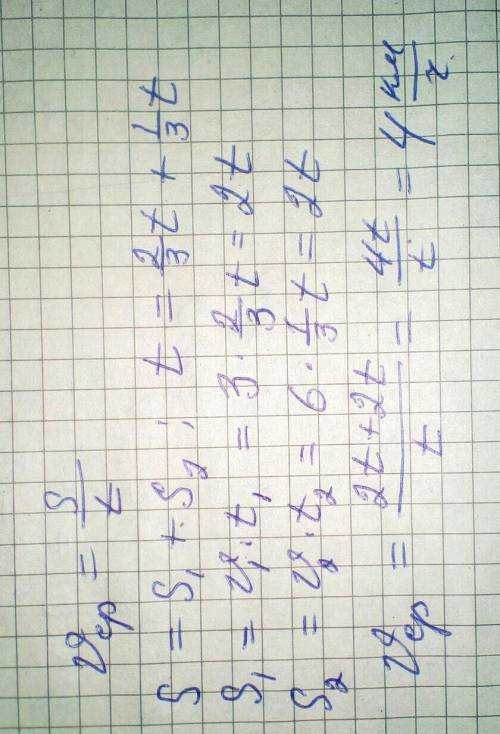 𝑣ср = S/t
S = S₁ + S₂; t = 2/3 t + 1/3 t
S₁ = 𝑣₁·t₁ = 3·2/3 t = 2t
S₂ = 𝑣₂·t₂ = 6·1/3 t = 2t
𝑣ср = (2t+2t)/t = 4t/t = 4 км/ч